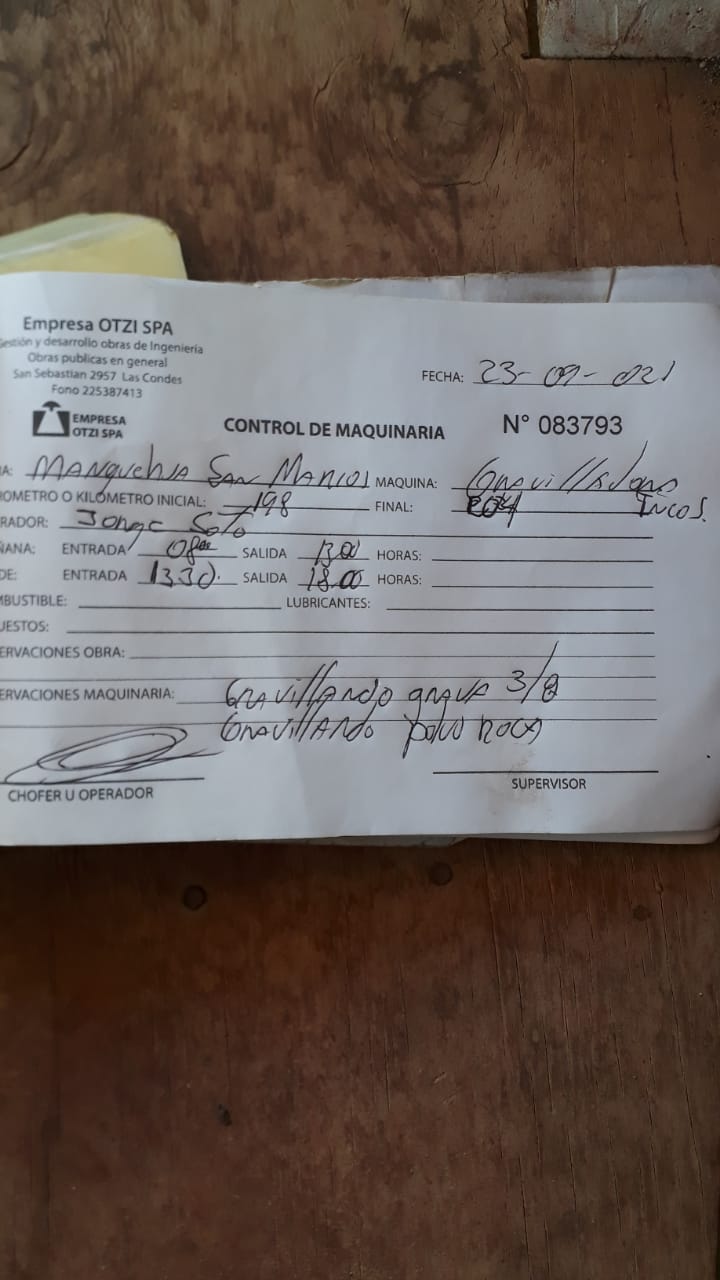 Empresa OTZI SPA
Gestión y desarrollo obras de Ingenieria
Obras publicas en general
San Sebastian 2957 Las Condes
Fono 225387413
FECHA: 23-09-021
EMPRESA
OTZI SPA
CONTROL DE MAQUINARIA
N° 083793
RA: MANQUEHUA SAN MARCOS MAQUINA: Gravilladora
ROMETRO O KILOMETRO INICIAL: 198 FINAL: INCOS.
RADOR: Jorge Soto
ÑANA: ENTRADA 08 00 SALIDA 13 00 HORAS:
DE: ENTRADA 1330. SALIDA 18.00 HORAS:
MBUSTIBLE: LUBRICANTES:
UESTOS:
ERVACIONES OBRA:
ERVACIONES MAQUINARIA: Gravillando grava 3/8
Gravillando polvo roca
CHOFER U OPERADOR
SUPERVISOR